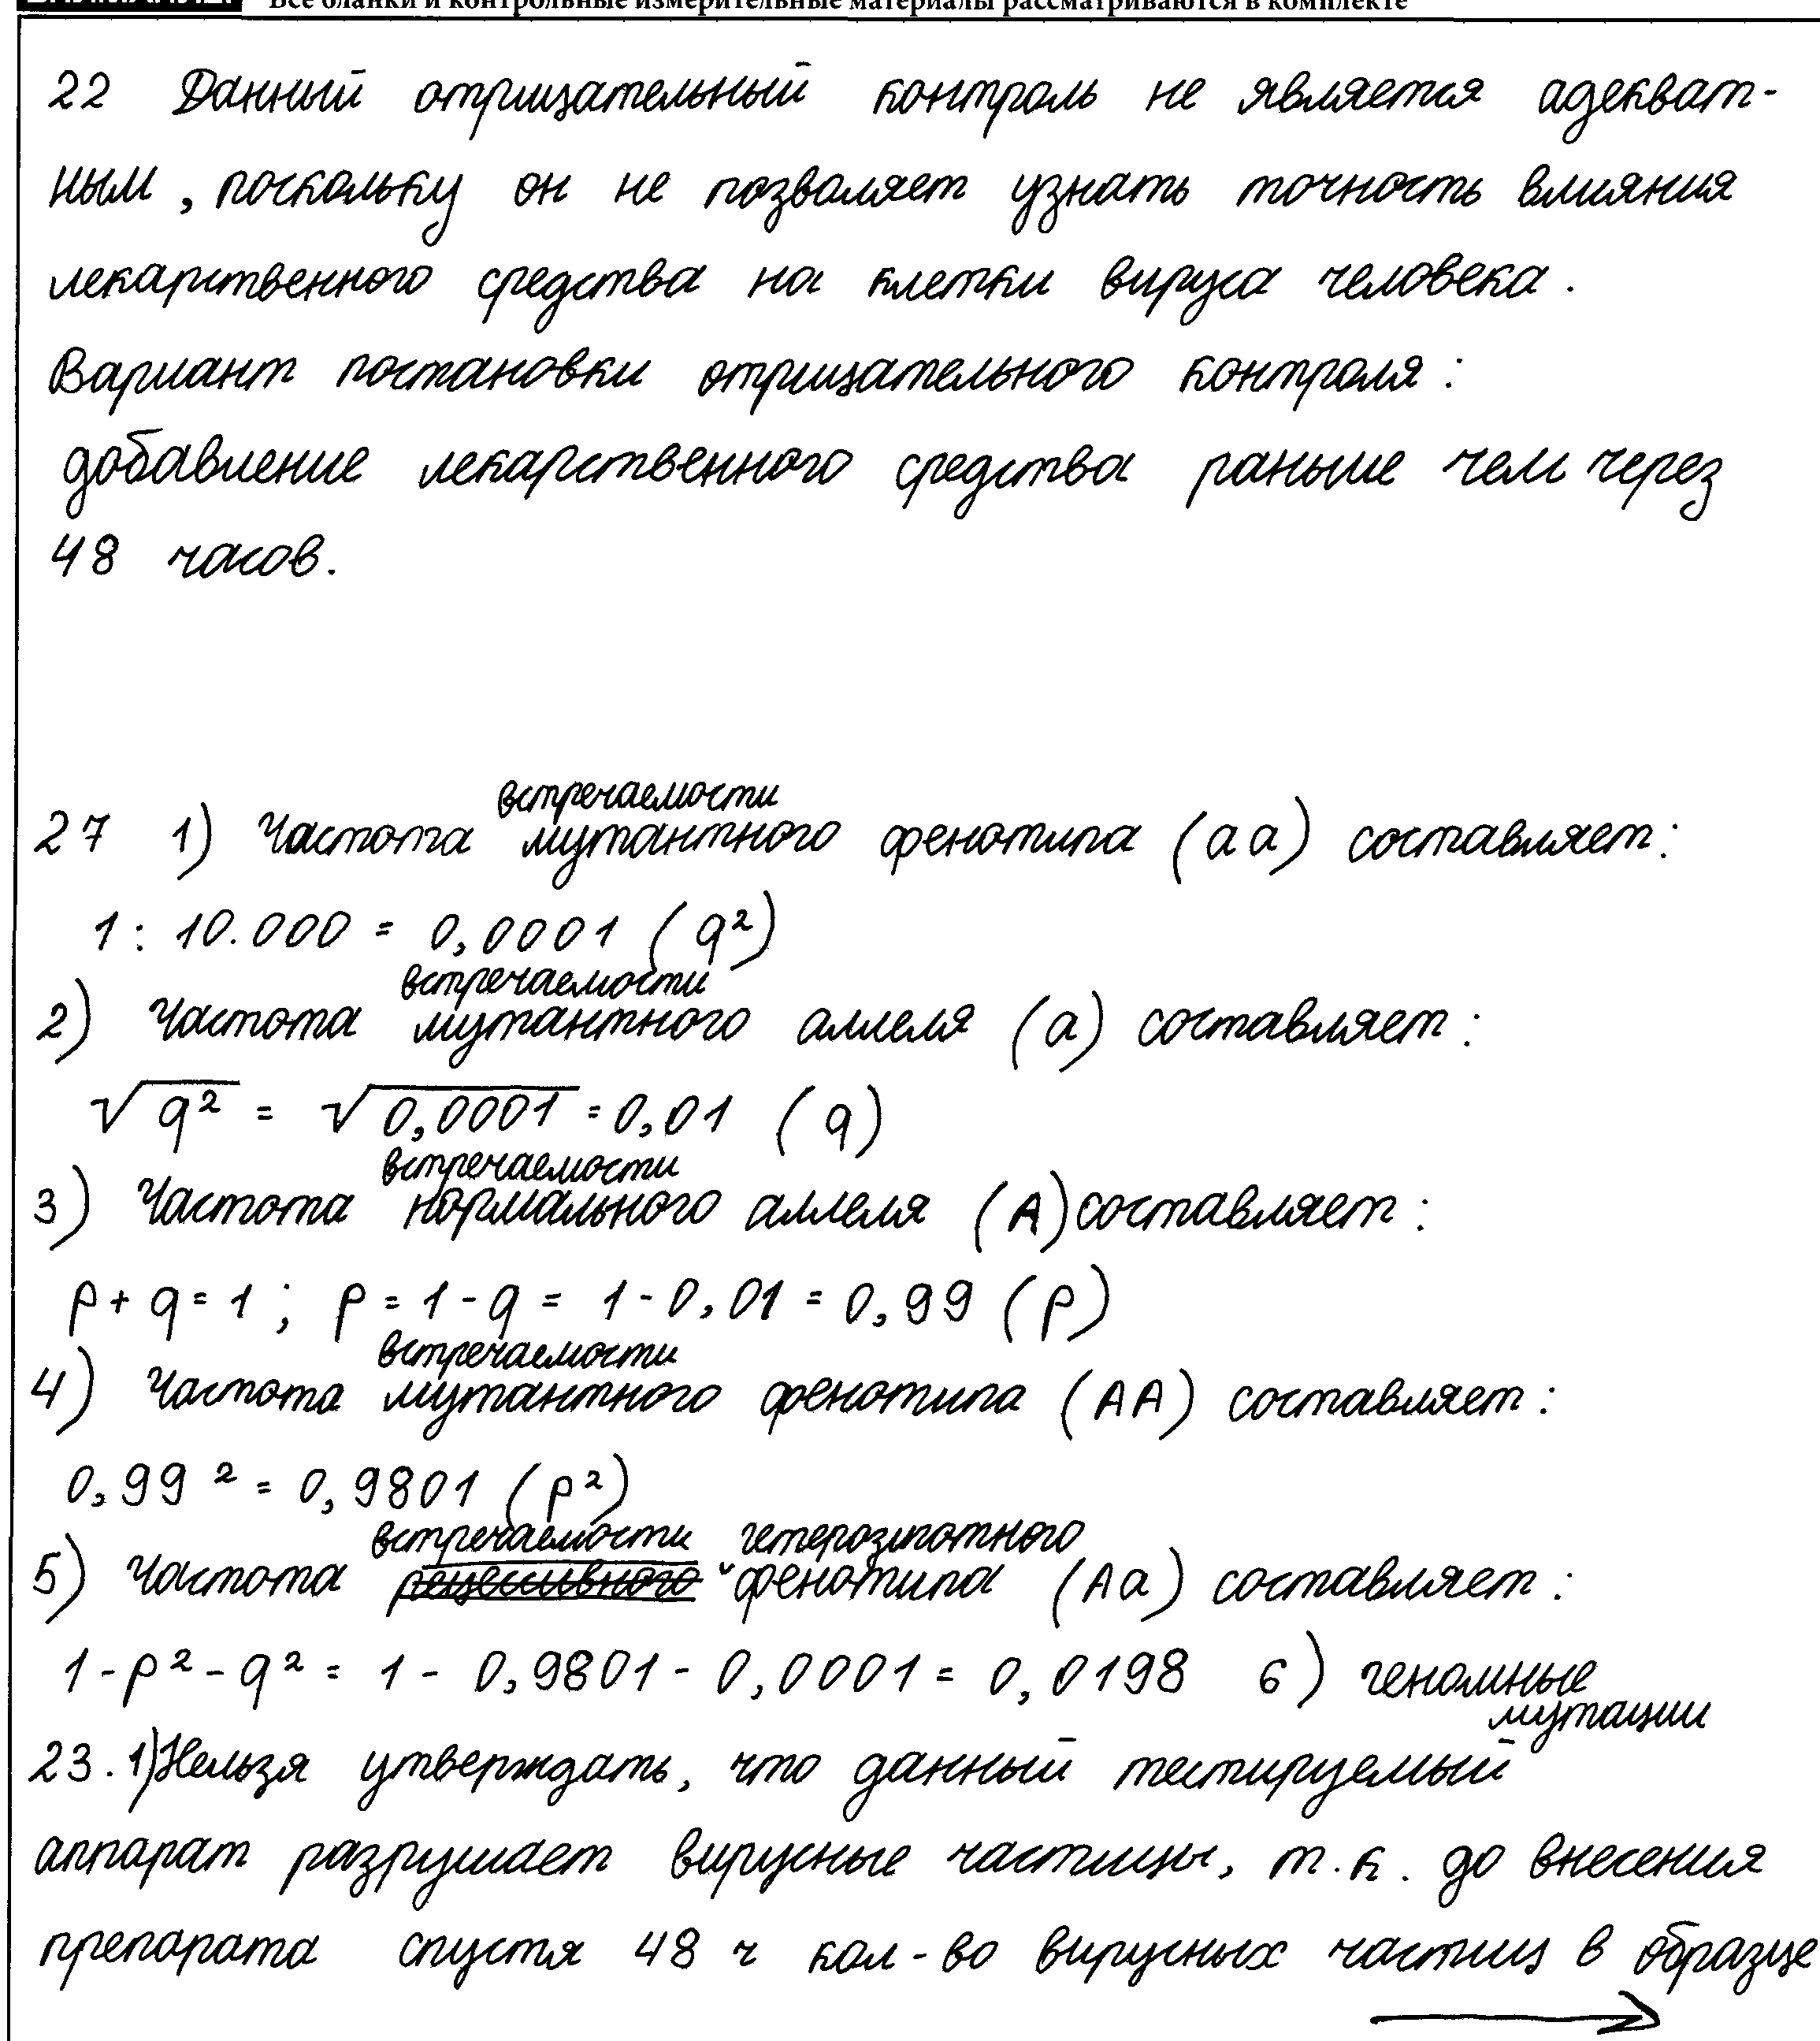 Все бланки и контрольные измерительные материалы рассматриваются в комплекте
22 Данный отрицательный контроль не является адекват-
ным, поскольку он не позволяет узнать точность влияния
лекарственного средства на клетки вируса человека.
Вариант постановки отрицательного контроля:
добавление лекарственного средства раньше чем через
48 часов.
встречаемости
27 1) Частота мутантного фенотипа (aa) составляет:
1 : 10.000 = 0,0001 (q²)
встречаемости
2) Частота мутантного аллеля (a) составляет:
√q² = √0,0001 = 0,01 (q)
встречаемости
3) Частота нормального аллеля (A) составляет:
p + q = 1 ; p = 1 - q = 1 - 0,01 = 0,99 (p)
встречаемости
4) Частота мутантного фенотипа (AA) составляет:
0,99² = 0,9801 (p²)
встречаемости гетерозиготного
5) Частота рецессивного ˅фенотипа (Aa) составляет:
1 - p² - q² = 1 - 0,9801 - 0,0001 = 0,0198 6) геномные
мутации
23. 1) Нельзя утверждать, что данный тестируемый
аппарат разрушает вирусные частицы, т.к. до внесения
препарата спустя 48 ч кол-во вирусных частиц в образце